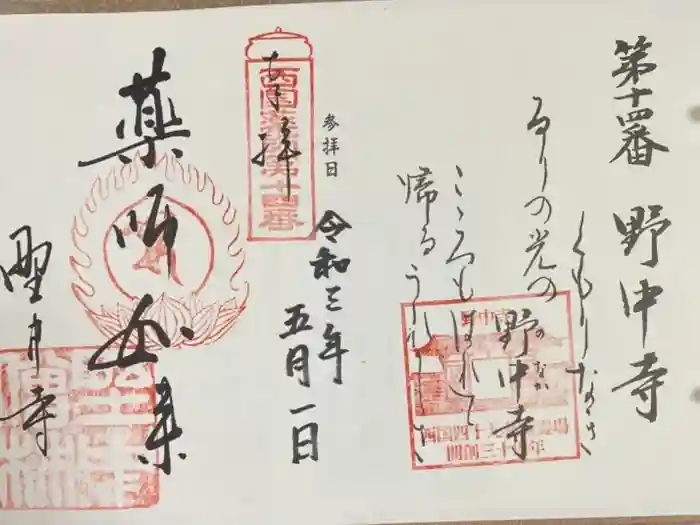 第十四番 野中寺
くもりなき
るりの光の
野中寺
のなか
こゝろもはれて
帰るうれしさ
西国四十九薬師霊場
開創三十周年
参拝日
令和三年
五月一日
奉拝
西国薬師第十四番
薬師如来
野中寺